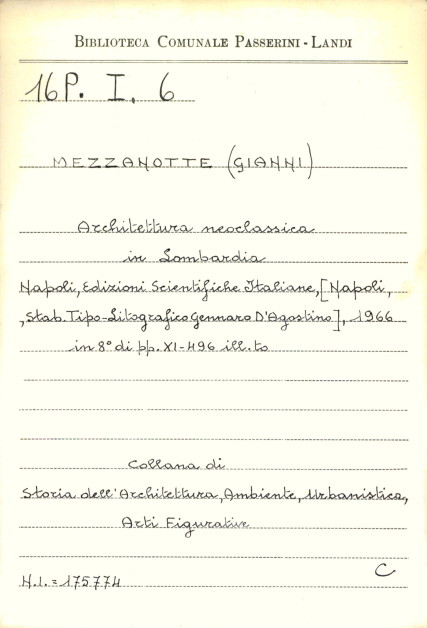 BIBLIOTECA COMUNALE PASSERINI - LANDI
16 P. I. 6
MEZZANOTTE (GIANNI)
Architettura neoclassica
in Lombardia
Napoli, Edizioni Scientifiche Italiane, [Napoli,
, Stab. Tipo-Litografico Gennaro D'Agostino], 1966
in 8° di pp. XI-496 ill.to
Collana di
Storia dell'Architettura, Ambiente, Urbanistica,
Arti Figurative
C
N.I. = 175774